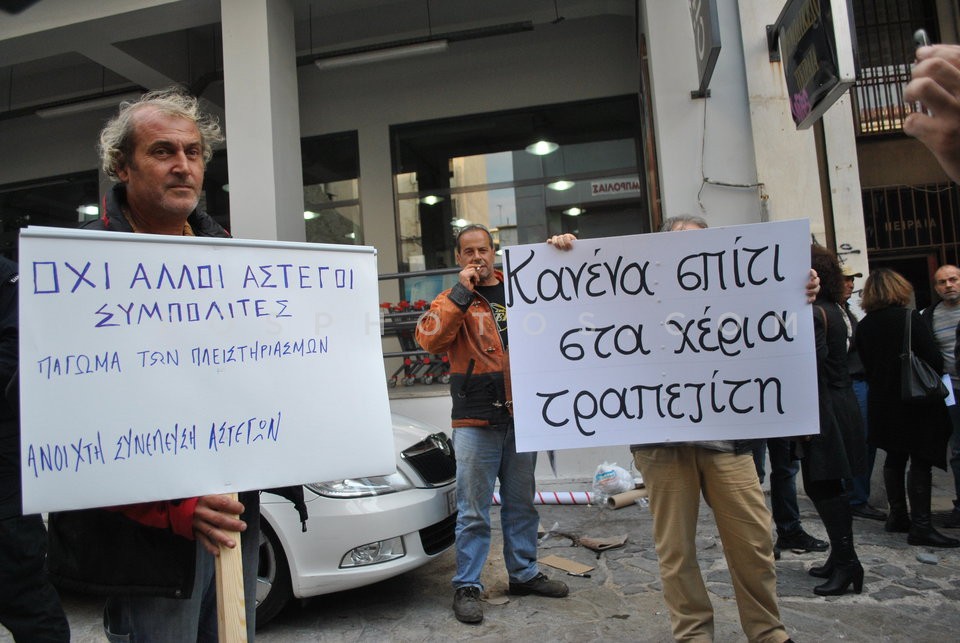 ΟΧΙ ΑΛΛΟΙ ΑΣΤΕΓΟΙ
ΣΥΜΠΟΛΙΤΕΣ
ΠΑΓΩΜΑ ΤΩΝ ΠΛΕΙΣΤΗΡΙΑΣΜΩΝ
ΑΝΟΙΧΤΗ ΣΥΝΕΛΕΥΣΗ ΑΣΤΕΓΩΝ
Κανένα σπίτι
στα χέρια
τραπεζίτη
ΠΕΙΡΑΙΑ
PHOTOS.COM